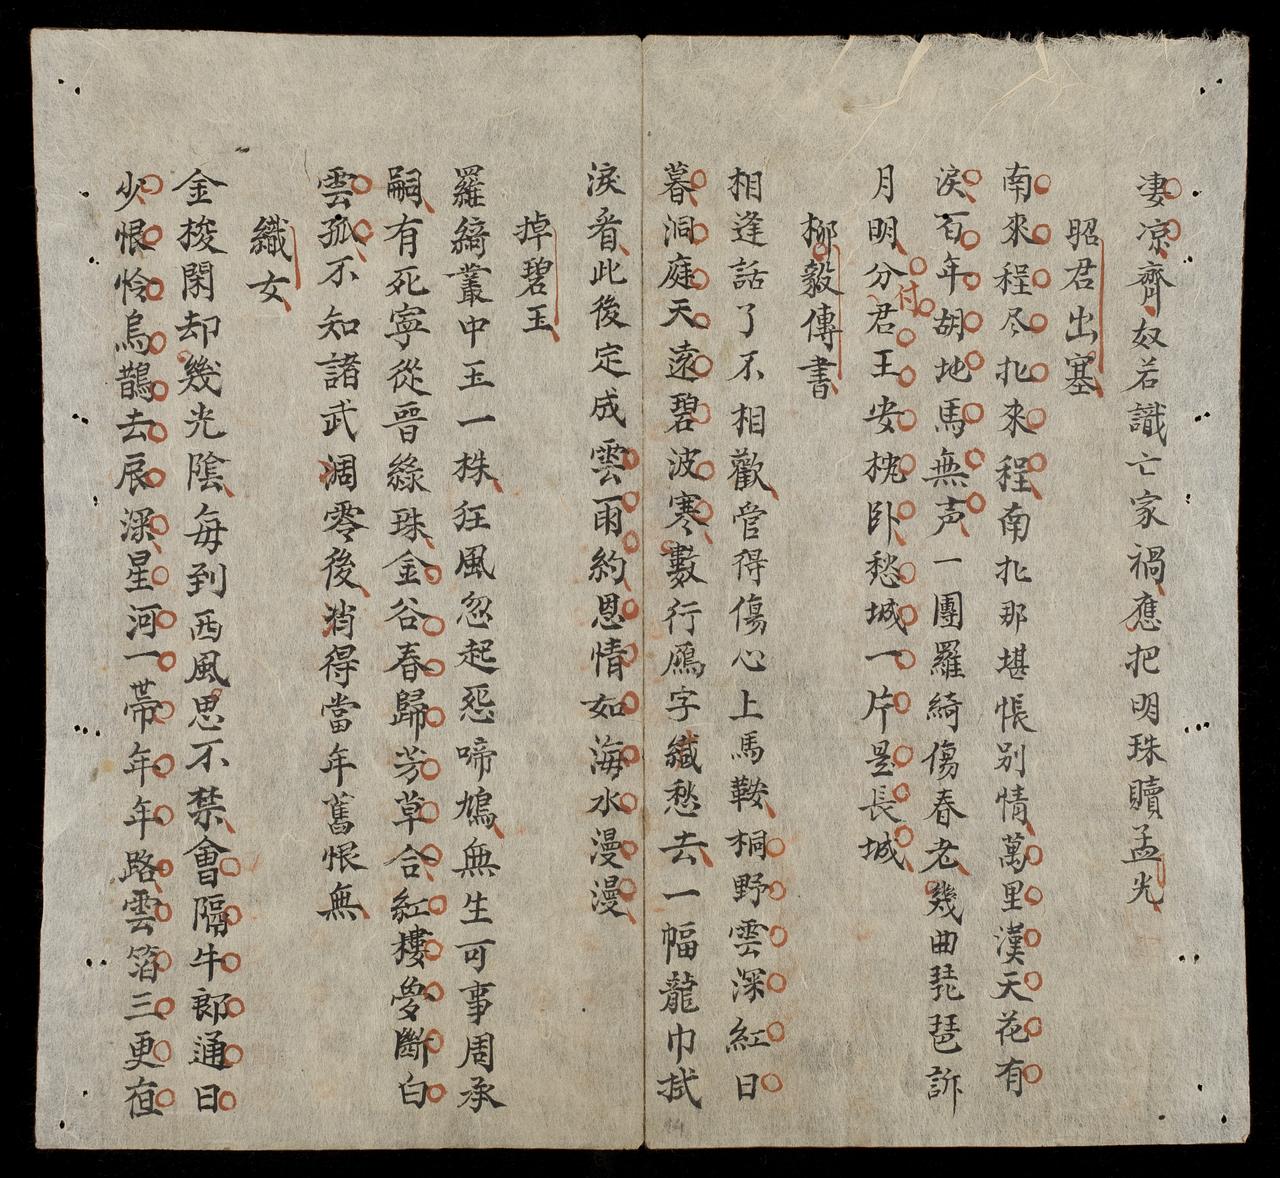 凄凉齊奴若識亡家禍應把明珠贖孟光
昭君出塞
南來程尽北來程南北那堪悵别情萬里漢天花有
淚百年胡地馬無声一團羅綺傷春老幾曲琵琶訴
月明分付君王安枕卧愁城一片是長城
柳毅傳書
相逢話了不相歡管得傷心上馬鞍桐野雲深紅日
暮洞庭天遠碧波寒數行鴈字緘愁去一幅龍巾拭
淚看此後定成雲雨約恩情如海水漫漫
悼碧玉
羅綺叢中玉一株狂風忽起惡啼鳩無生可事周承
嗣有死寧從晋綠珠金谷春歸芳草合紅樓夢斷白
雲孤不知諸武凋零後消得當年舊恨無
織女
金梭閑却幾光陰每到西風思不禁會隔牛郎通日
少恨怜烏鵲去辰深星河一帶年年路雲箔三更夜